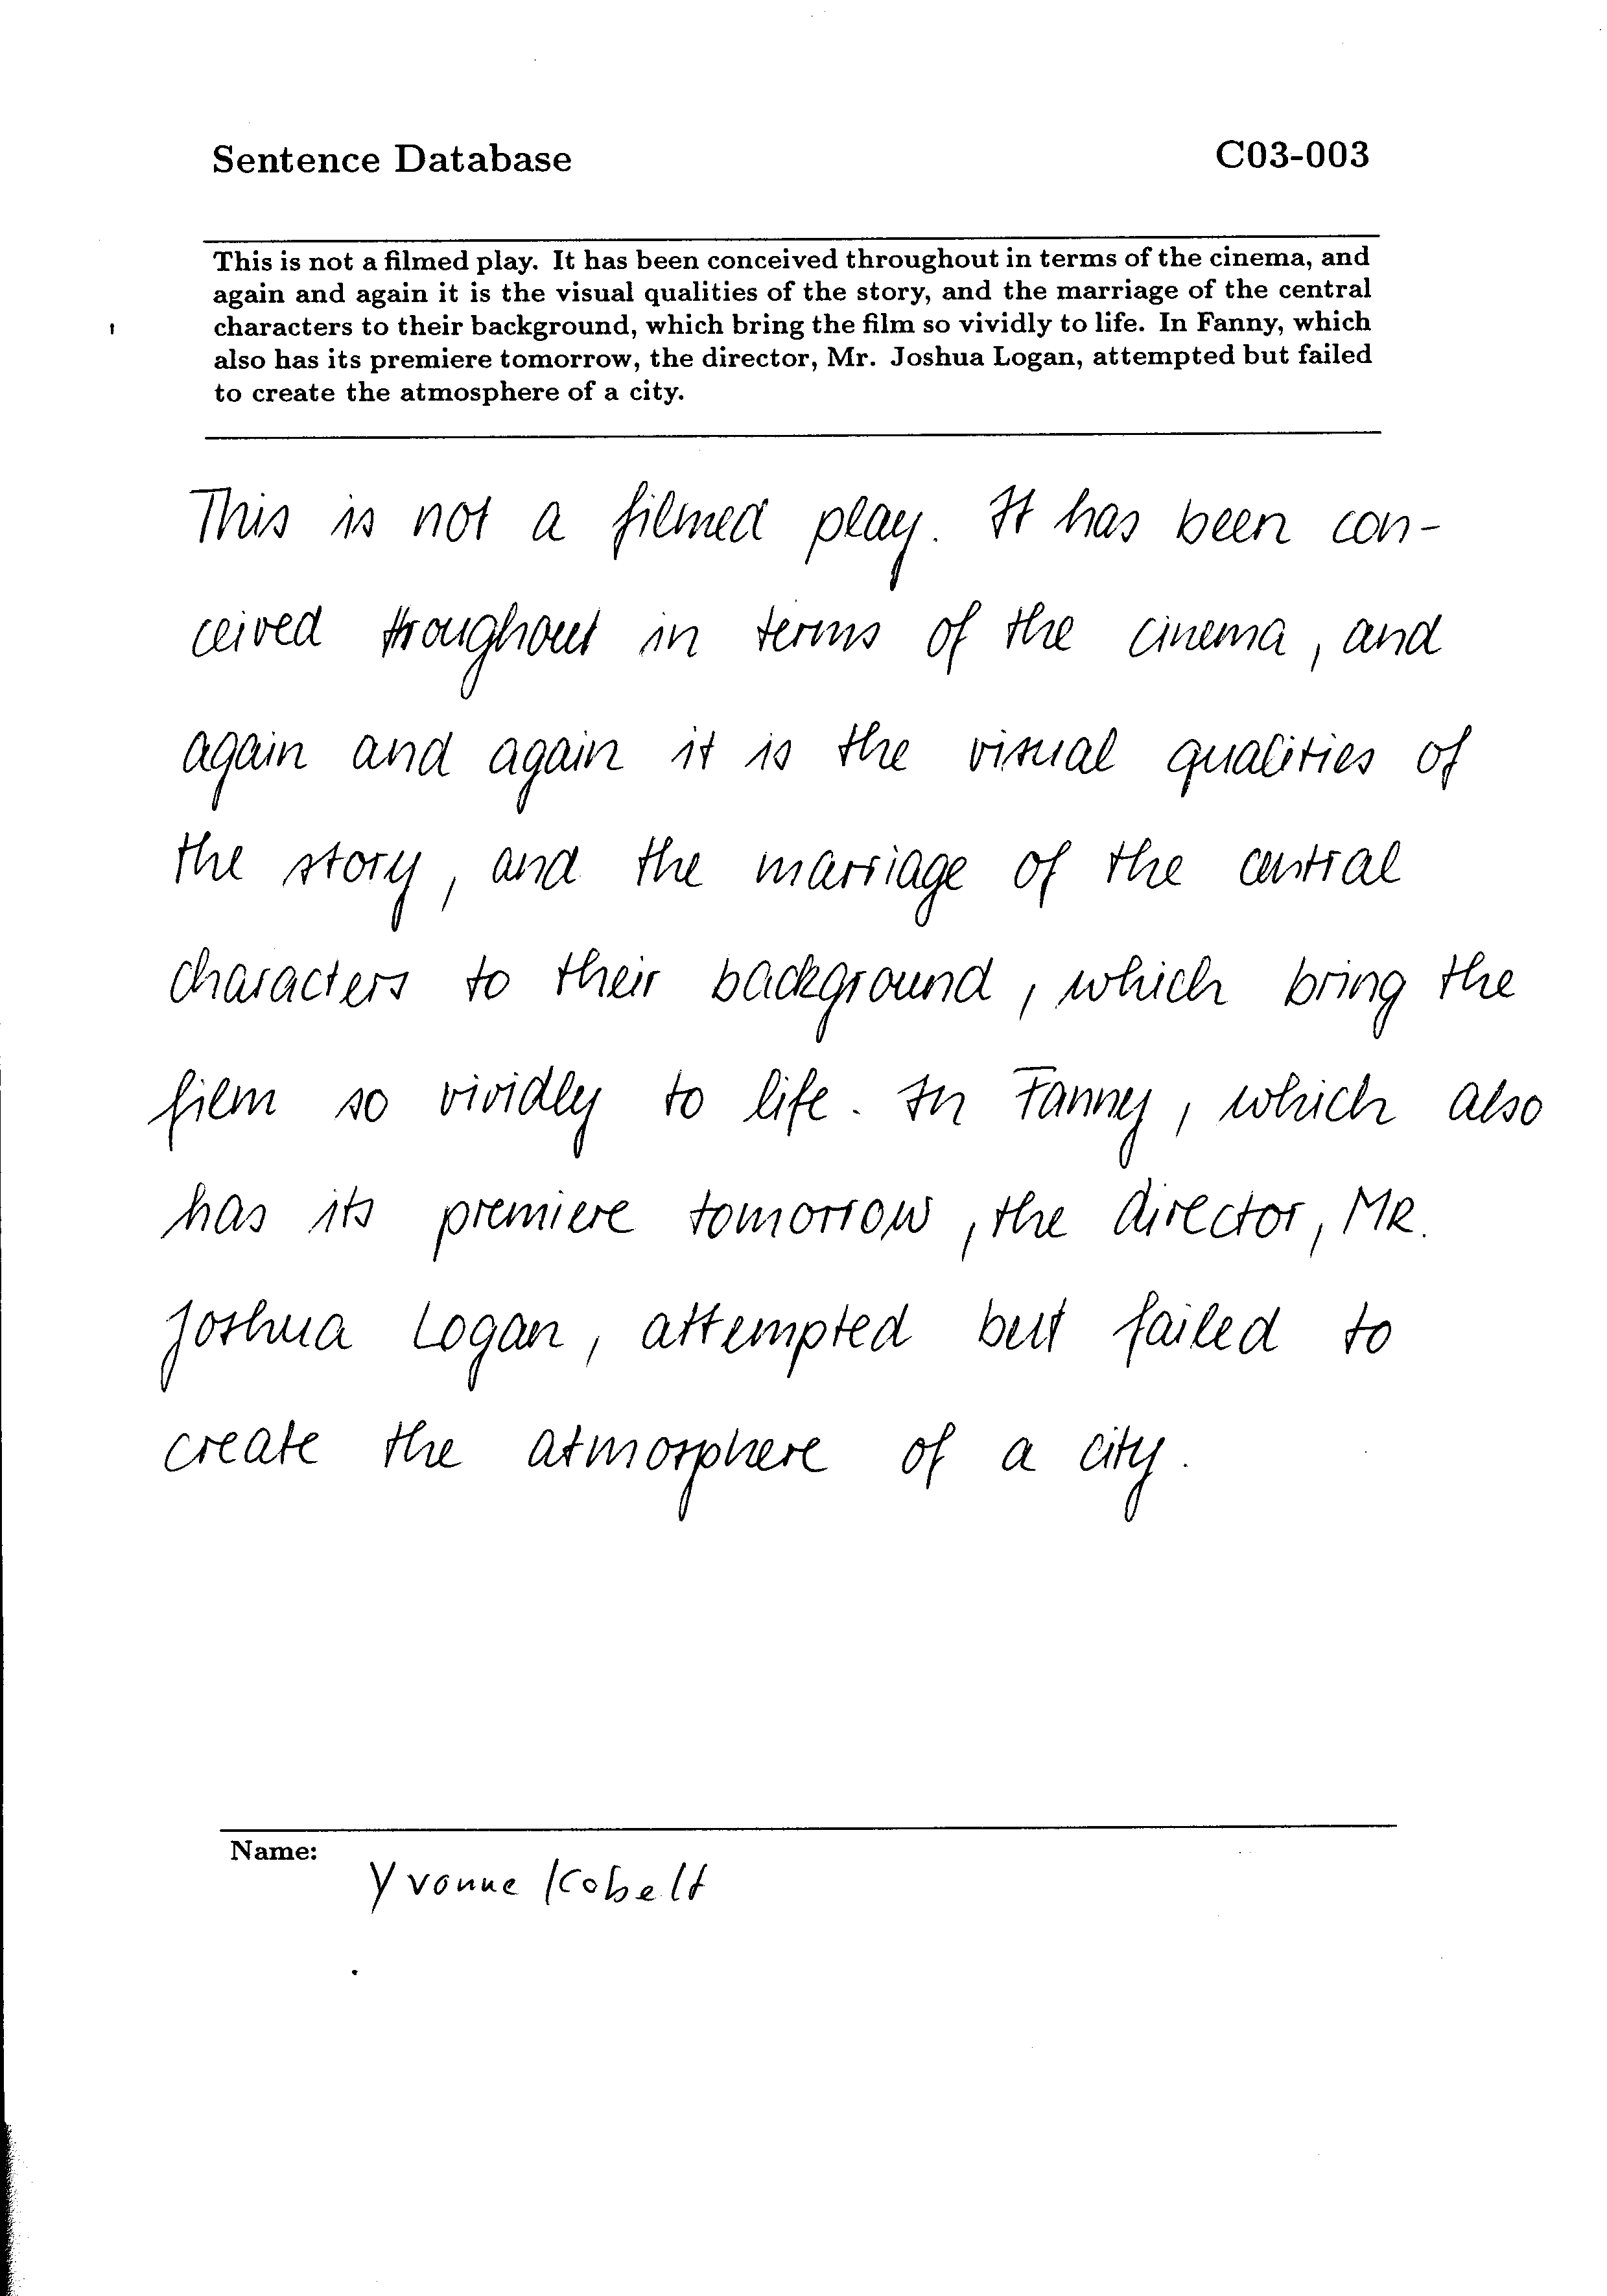 Sentence Database C03-003
This is not a filmed play. It has been conceived throughout in terms of the cinema, and
again and again it is the visual qualities of the story, and the marriage of the central
characters to their background, which bring the film so vividly to life. In Fanny, which
also has its premiere tomorrow, the director, Mr. Joshua Logan, attempted but failed
to create the atmosphere of a city.
This is not a filmed play. It has been con-
ceived troughout in terms of the cinema, and
again and again it is the visual qualities of
the story, and the marriage of the central
characters to their background, which bring the
film so vividly to life. In Fanny, which also
has its premiere tomorrow, the director, MR.
Joshua Logan, attempted but failed to
create the atmosphere of a city.
Name:
Yvonne Kobelt